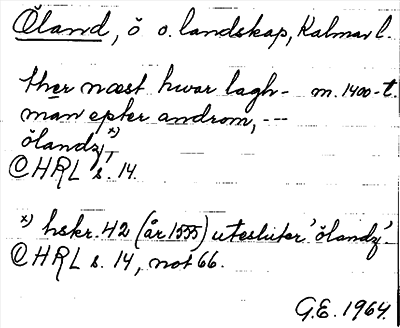 Öland, ö o. landskap, Kalmar l.
ther næst hwar lagh- m. 1400-t.
man epter androm, ---
ölandz x) T
CHRL s. 14.
x) hskr. 42 (år 1555) utesluter 'ölandz'.
CHRL s. 14, not 66.
G.E. 1964.